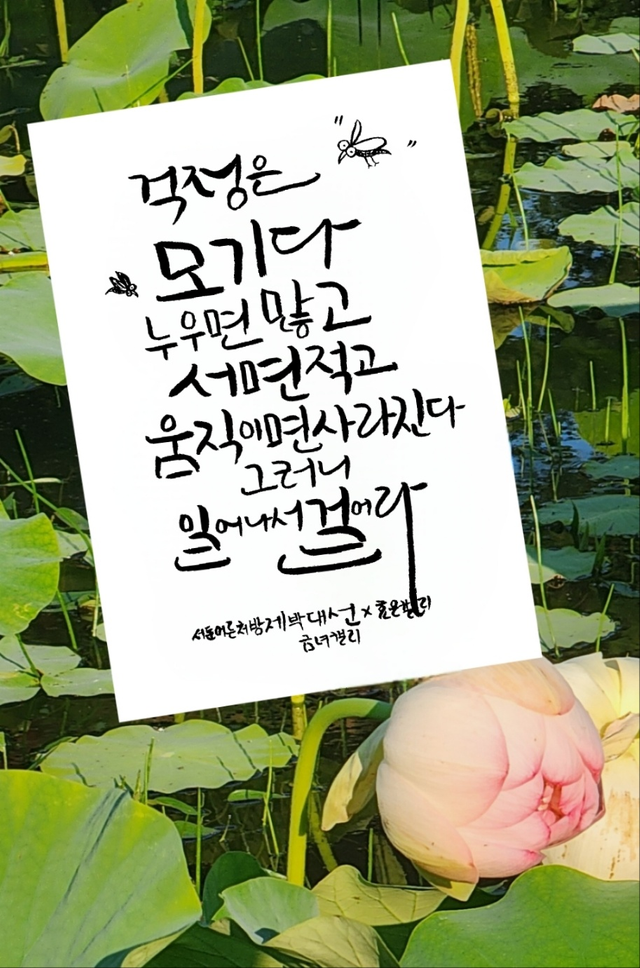 " "
걱정은
모기다
누우면 많고
서면 적고
움직이면 사라진다
그러니
일어나서 걸어라
서툰어른처방제 박대선 x 효은캘리
금녀캘리